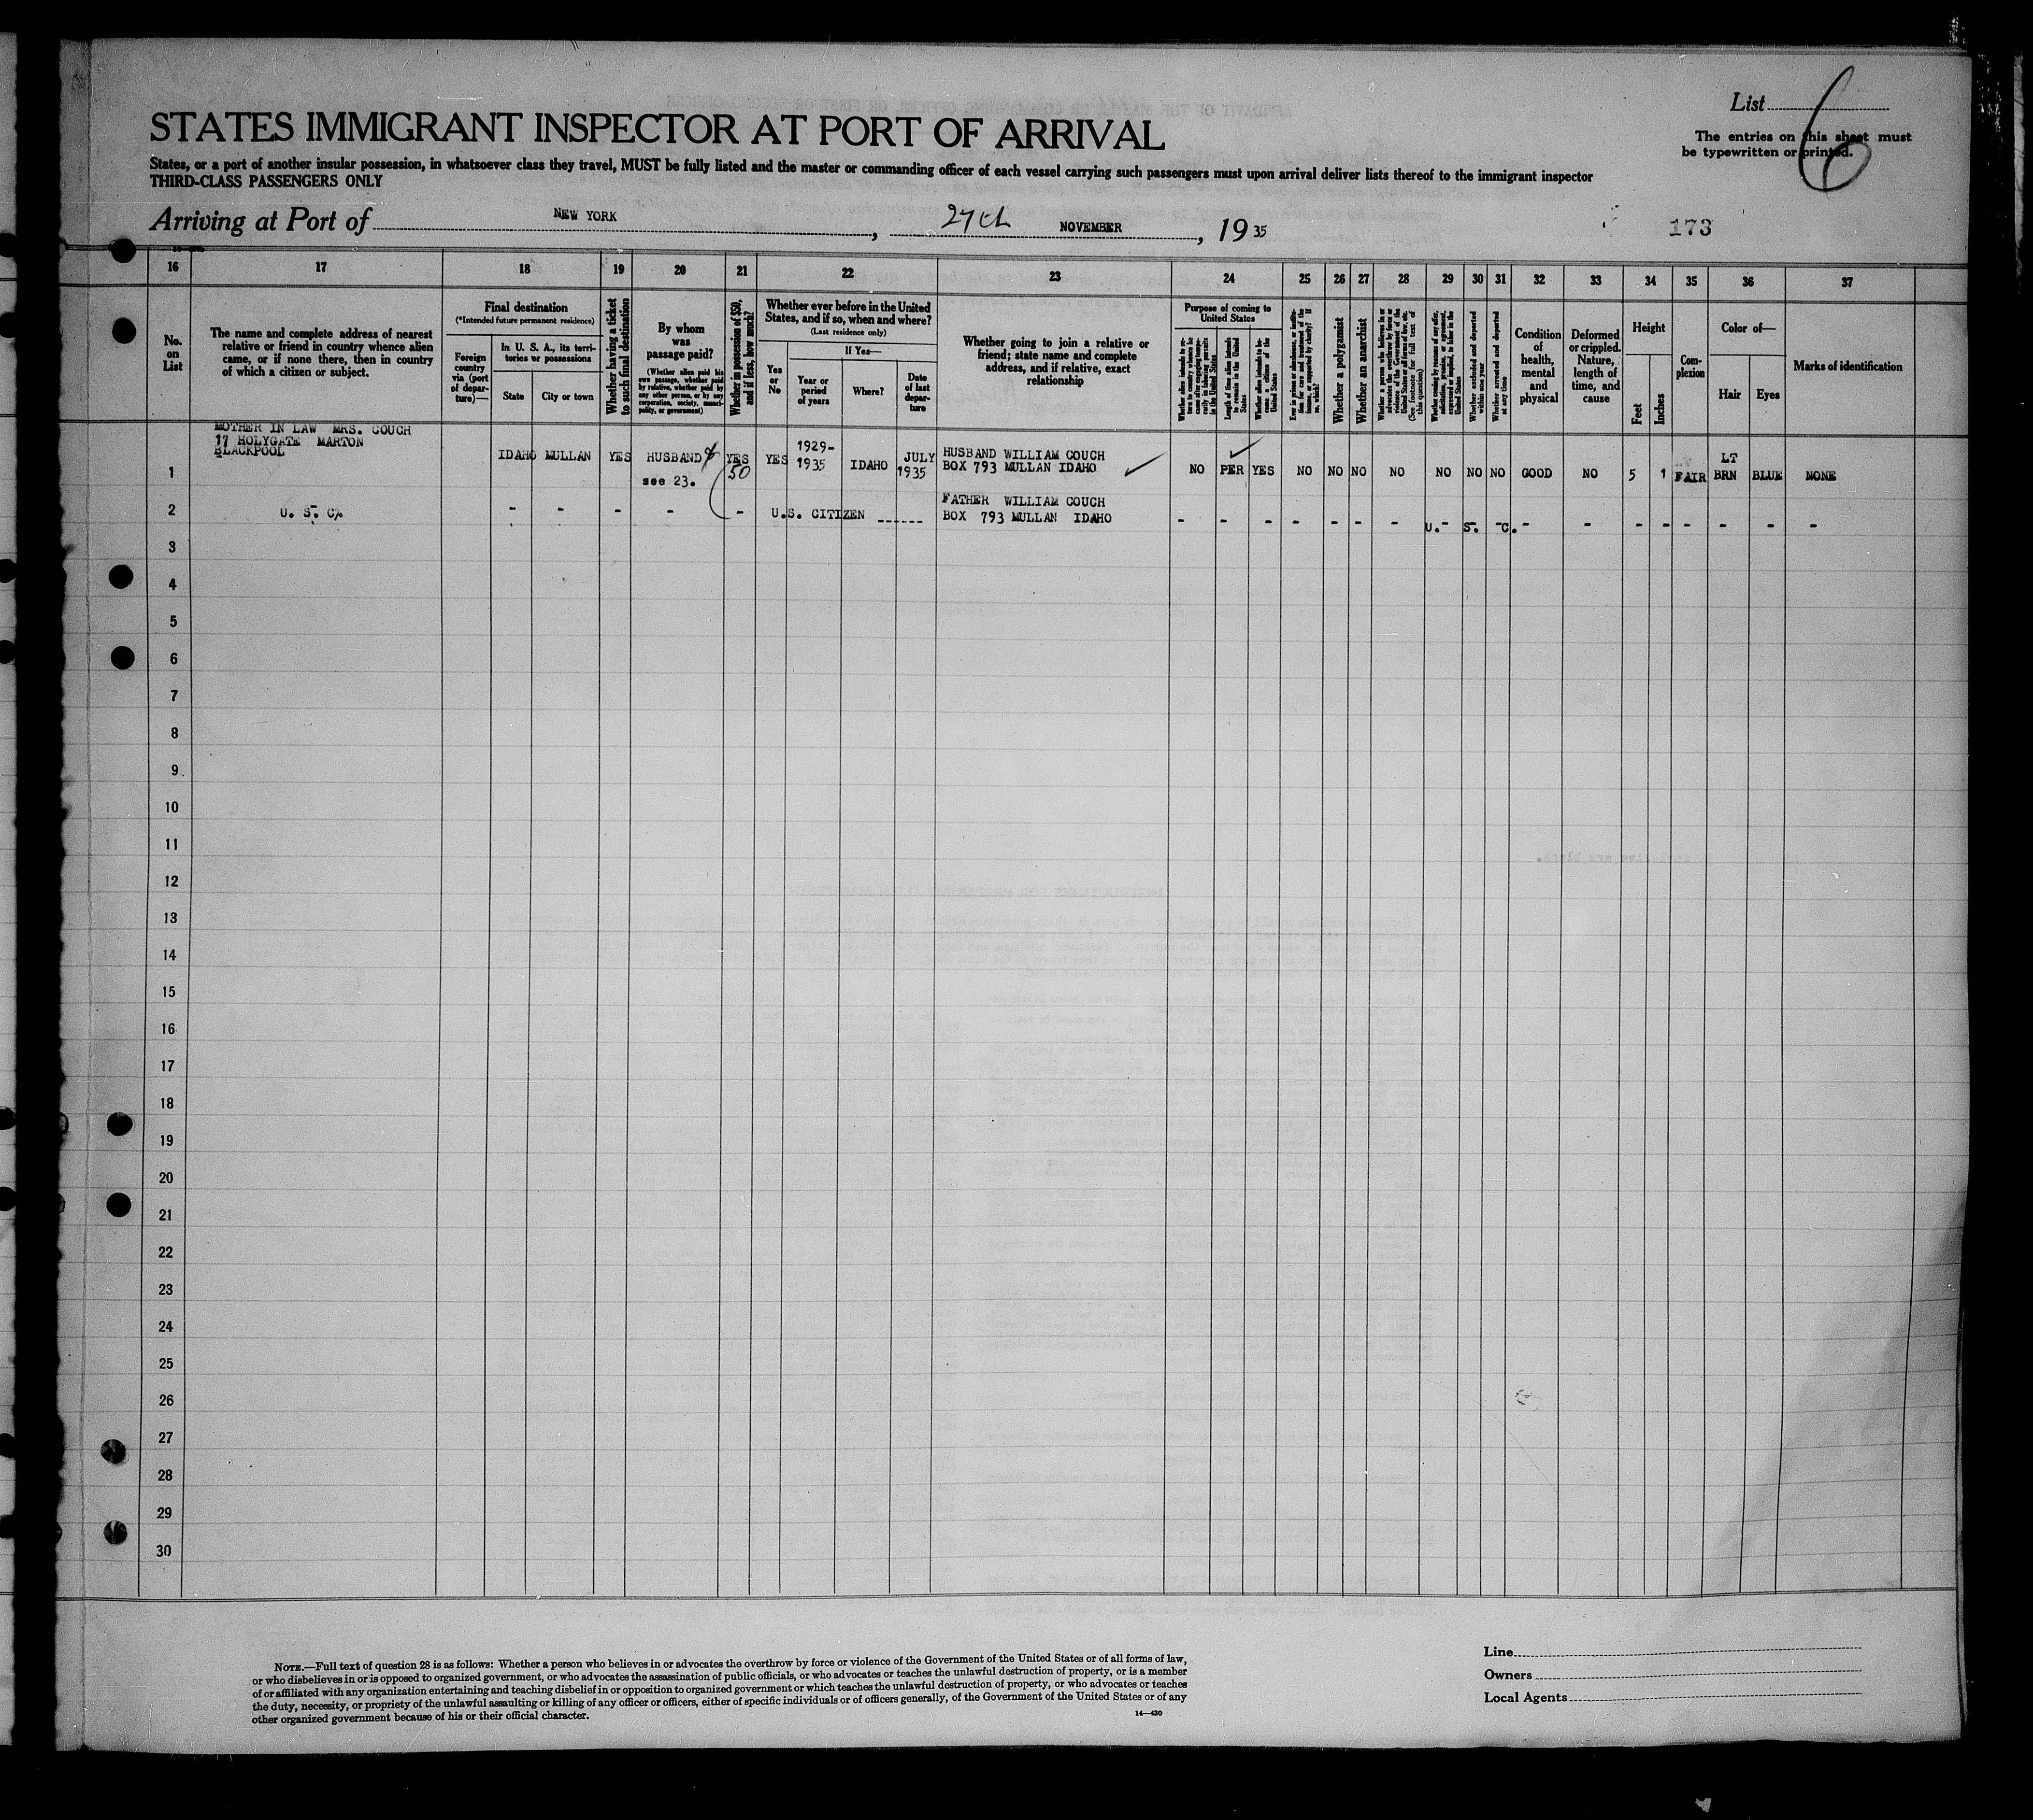 List 6
The entries on this sheet must
be typewritten or printed.
STATES IMMIGRANT INSPECTOR AT PORT OF ARRIVAL
States, or a port of another insular possession, in whatsoever class they travel, MUST be fully listed and the master or commanding officer of each vessel carrying such passengers must upon arrival deliver lists thereof to the immigrant inspector
THIRD-CLASS PASSENGERS ONLY
Arriving at Port of NEW YORK, 27th NOVEMBER, 1935
173
16 17 18 19 20 21 22 23 24 25 26 27 28 29 30 31 32 33 34 35 36 37
No. on List
The name and complete address of nearest
relative or friend in country whence alien
came, or if none there, then in country
of which a citizen or subject.
Final destination
(*Intended future permanent residence)
Foreign country via (port of departure)—
In U. S. A., its territories or possessions
State
City or town
Whether having a ticket to such final destination
By whom was passage paid?
(Whether alien paid his own passage, whether paid by relative, whether paid by any other person, or by any corporation, society, municipality, or government)
Whether in possession of $50, and if less, how much?
Whether ever before in the United
States, and if so, when and where?
(Last residence only)
Yes or No
If Yes—
Year or period of years
Where?
Date of last departure
Whether going to join a relative or
friend; state name and complete
address, and if relative, exact
relationship
Purpose of coming to United States
Length of time alien intends to remain in the United States
Whether alien intends to become a citizen of the United States
Whether a polygamist
Whether an anarchist
(See footnote for full text of this question)
Whether excluded and deported within one year
Whether arrested and deported at any time
Condition of health, mental and physical
Deformed or crippled. Nature, length of time, and cause
Height
Feet
Inches
Complexion
Color of—
Hair
Eyes
Marks of identification
MOTHER IN LAW MRS. COUCH
17 HOLYGATE MARTON
BLACKPOOL
1 IDAHO MULLAN YES HUSBAND see 23. YES 50 YES 1929-1935 IDAHO JULY 1935
HUSBAND WILLIAM COUCH
BOX 793 MULLAN IDAHO
NO PER YES NO NO NO NO NO NO NO GOOD NO 5 1 FAIR LT BRN BLUE NONE
2 U. S. C. - - - - - U.S. CITIZEN ------
FATHER WILLIAM COUCH
BOX 793 MULLAN IDAHO
- - - - - - - U.- S.- -C. - - - - - - - -
3
4
5
6
7
8
9
10
11
12
13
14
15
16
17
18
19
20
21
22
23
24
25
26
27
28
29
30
NOTE.—Full text of question 28 is as follows: Whether a person who believes in or advocates the overthrow by force or violence of the Government of the United States or of all forms of law,
or who disbelieves in or is opposed to organized government, or who advocates the assassination of public officials, or who advocates or teaches the unlawful destruction of property, or is a member
of or affiliated with any organization entertaining and teaching disbelief in or opposition to organized government or which teaches the unlawful destruction of property, or who advocates or teaches
the duty, necessity, or propriety of the unlawful assaulting or killing of any officer or officers, either of specific individuals or of officers generally, of the Government of the United States or of any
other organized government because of his or their official character.
14—430
Line
Owners
Local Agents